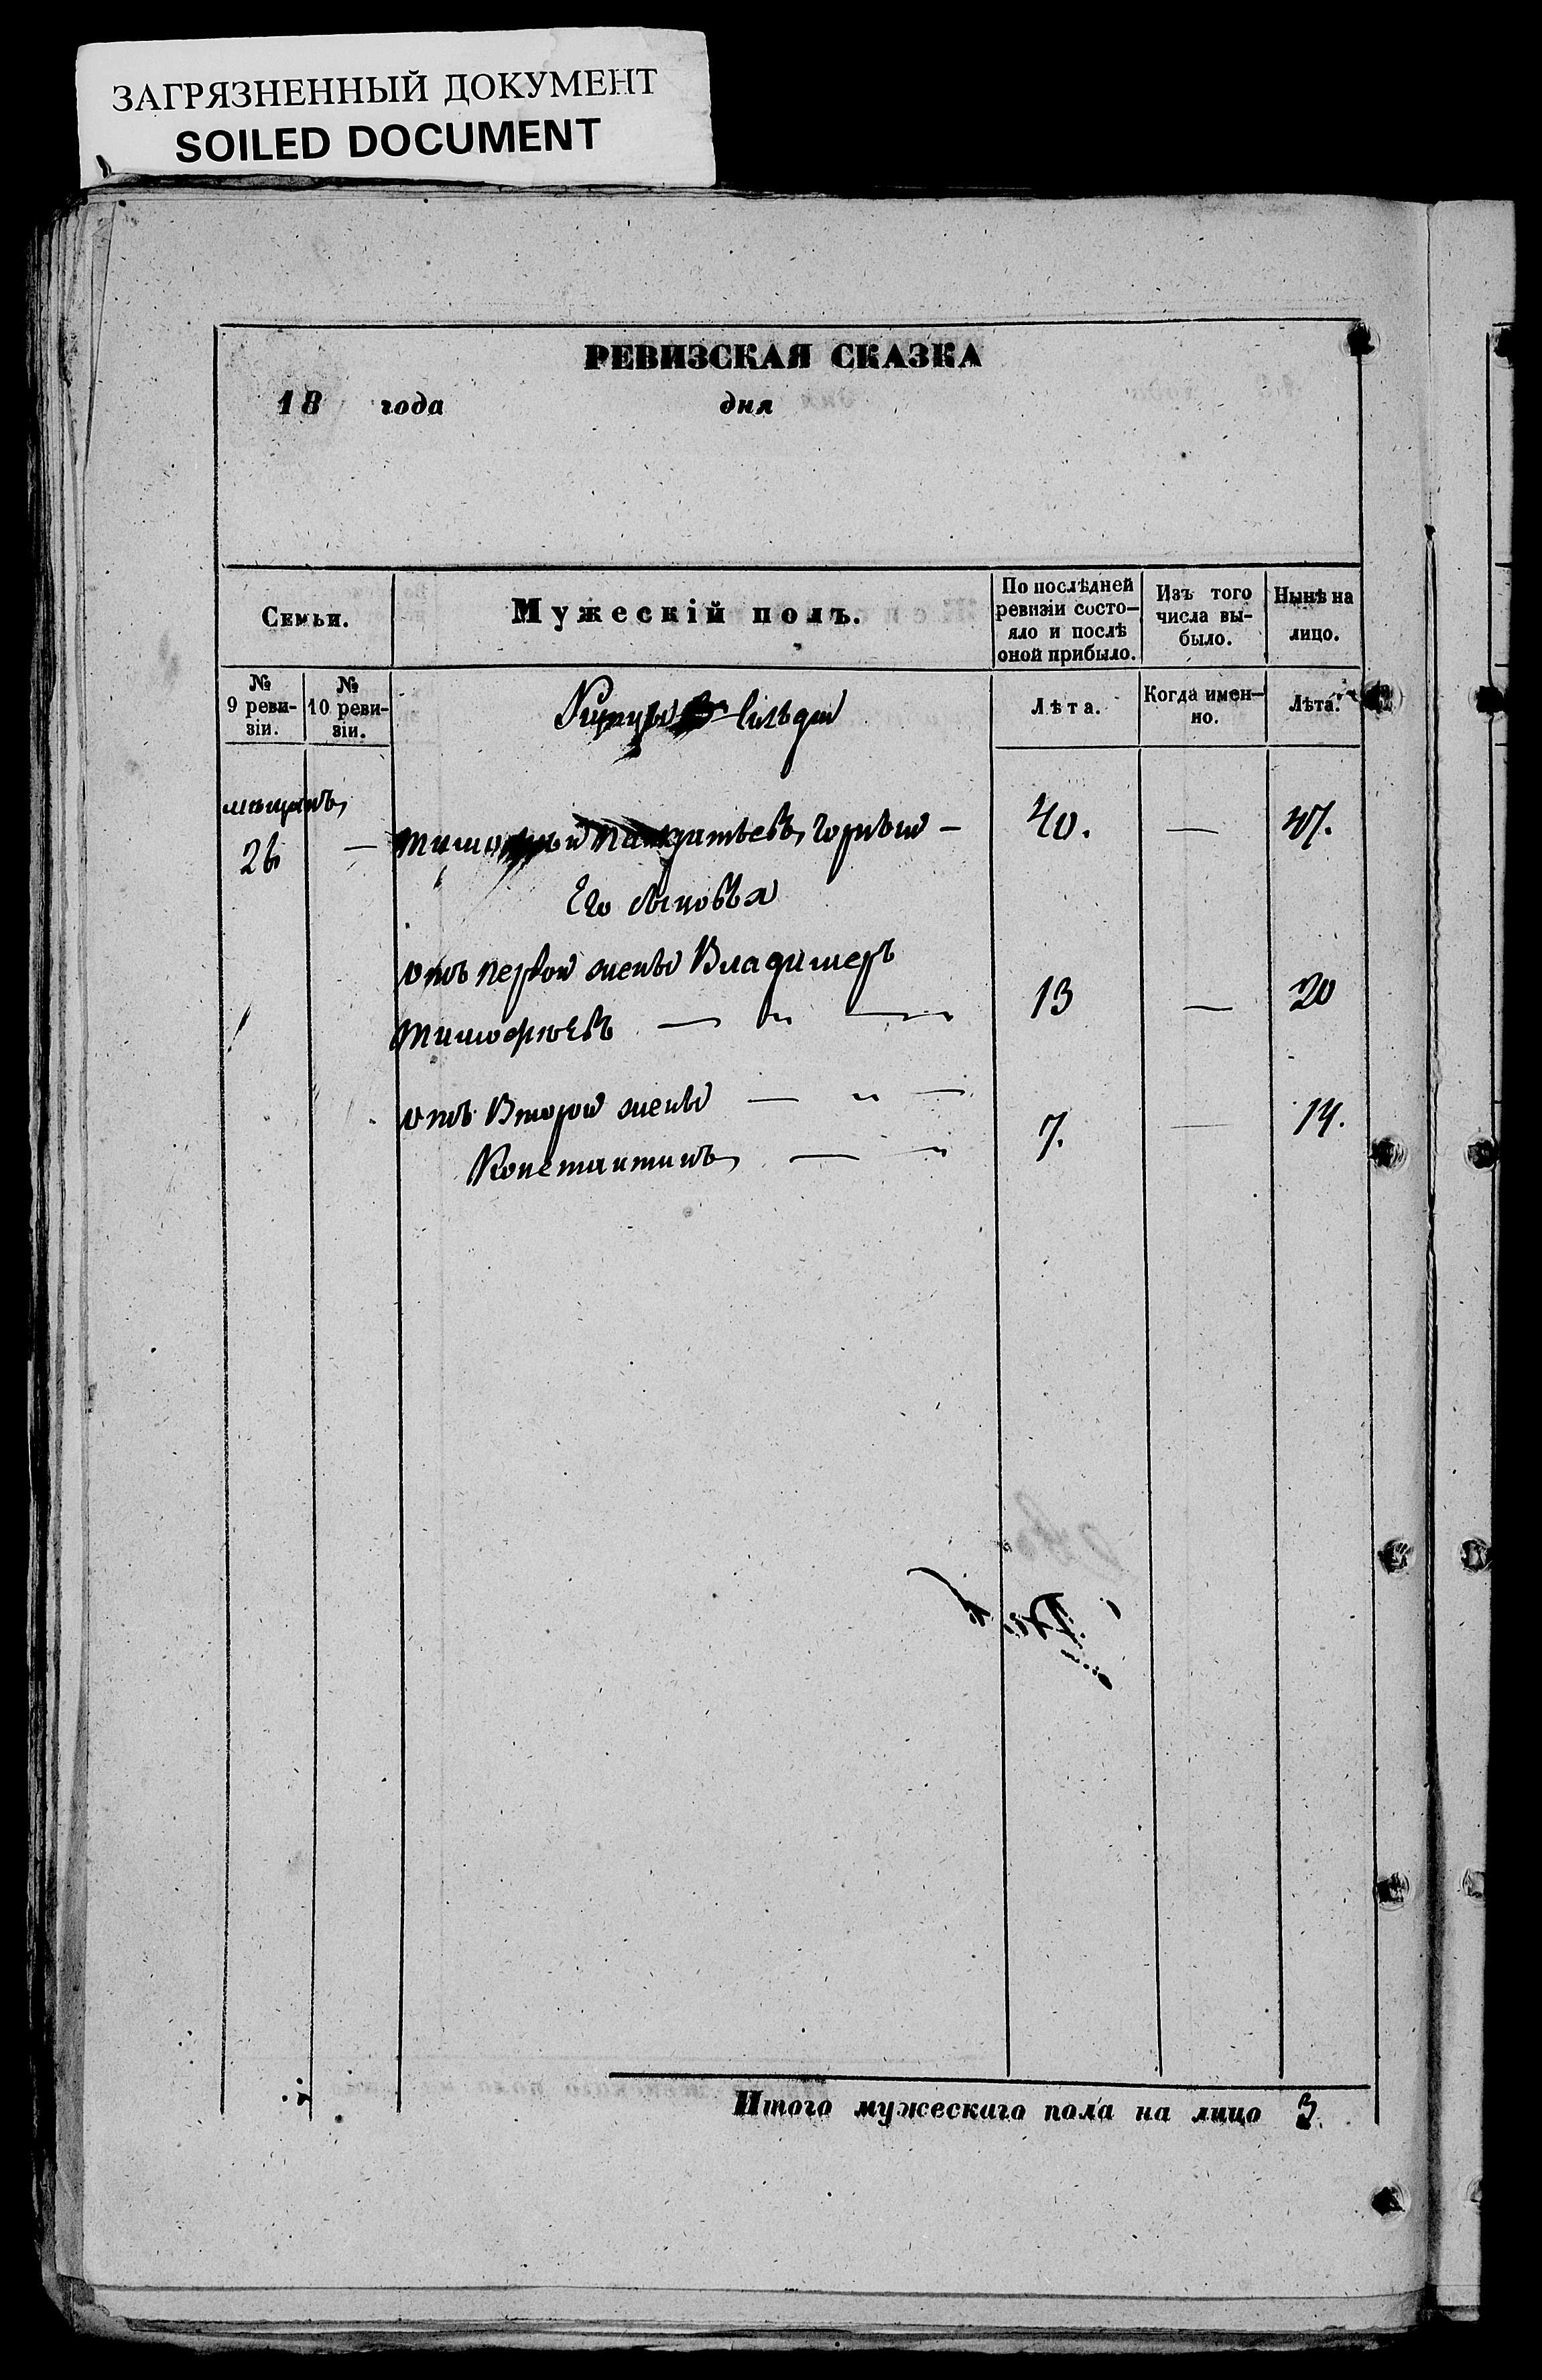 ЗАГРЯЗНЕННЫЙ ДОКУМЕНТ
SOILED DOCUMENT
РЕВИЗСКАЯ СКАЗКА
18 года дня
Семьи.
Мужескій полъ.
По послѣдней ревизіи состо-яло и послѣ оной прибыло.
Изъ того числа вы-было.
Нынѣ на лицо.
№ 9 реви-зіи.
№ 10 реви-зіи.
Лѣта.
Когда имен-но.
Лѣта.
мещанъ
26 — Тимофей Панкратьевъ — 40. — 47.
Его сыновья
отъ первой жены Владимеръ
Тимофеевъ — " — 13 — 20
отъ Второй жены — " —
Константинъ — " 7. — 14.
Итого мужескаго пола на лицо 3.